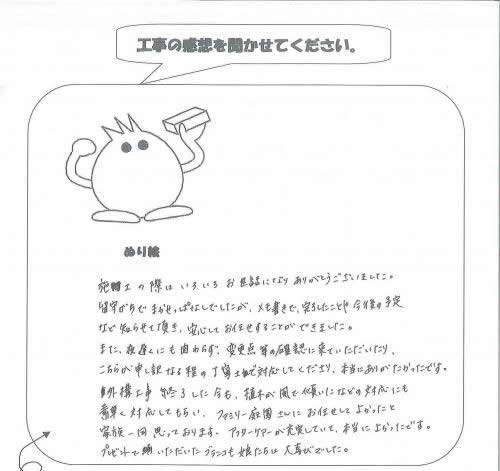 工事の感想を聞かせてください。
ぬり絵
施工の際はいろいろお世話になりありがとうございました。
留守がちでまかせっぱなしでしたが、メモ書きで、完了したことや今後の予定
など知らせて頂き、安心してお任せすることができました。
また、夜遅くにも関わらず、変更点等の確認に来ていただいたり、
こちらが申し訳なる程の丁寧な対応してくださり、本当にありがたかったです。
外構工事終了した今も、植木が風で傾いたなどの対応にも
素早く対応してもらい、ファミリー庭園さんにお任せしてよかったと
家族一同思っております。アフターケアーが充実していて、本当によかったです。
プレゼントで頂いたブランコも娘たちは大喜びでした。